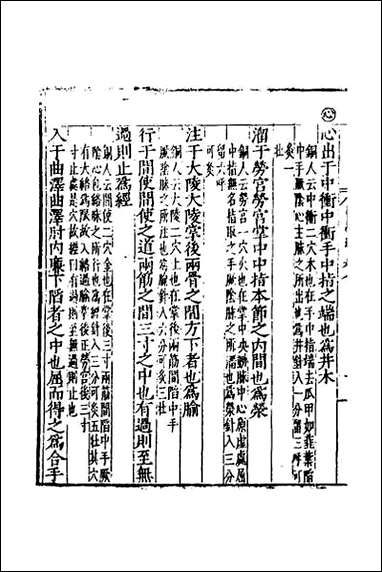 心
心出于中衝中衝手中指之端也爲井木
銅人云中衝二穴木也在手中指端去爪甲如韮葉陷
中手厥陰心主脉之所出也爲井鍼入一分留三呼可
灸一
壯
溜于勞宮勞宮掌中中指本節之内間也爲滎
銅人云勞宮二穴火也在掌中央横脉中心屈
中指無名指取之手厥陰脉之所溜也爲滎針入三分
留六呼
可灸
注于大陵大陵掌後兩骨之間方下者也爲腧
銅人云大陵二穴土也在掌後兩筋間陷中手
厥陰脉之所注也爲腧針入六分可灸三壯
行于間使間使之道兩筋之間三寸之中也有過則至無
過則止爲經
銅人云間使二穴金也在掌後三寸兩筋間陷中手厥
陰心包絡脉之所行也爲經針入三分可灸五壯其穴
有過則至無過則止也
入于曲澤曲澤肘内廉下陷者之中也屈而得之爲合手